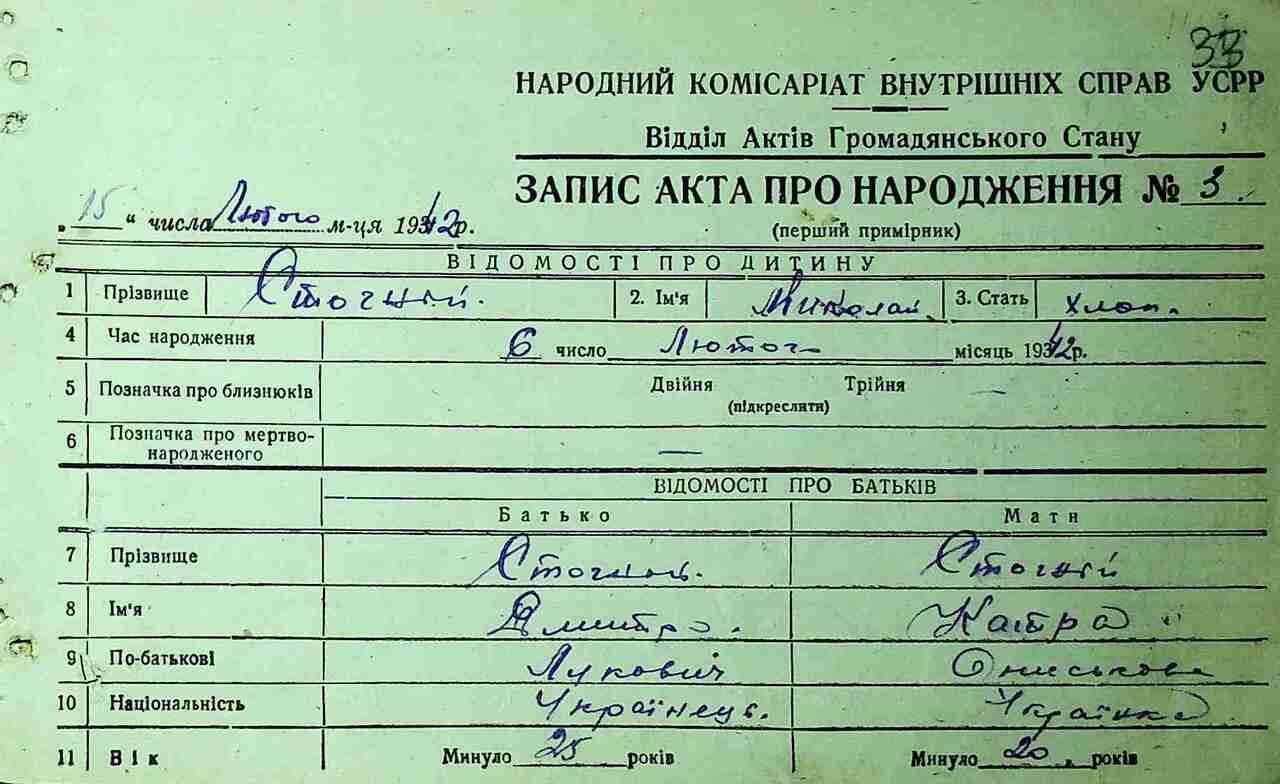 33
НАРОДНИЙ КОМІСАРІАТ ВНУТРІШНІХ СПРАВ УСРР
Відділ Актів Громадянського Стану
ЗАПИС АКТА ПРО НАРОДЖЕННЯ № 3.
„15“ числа Лютого м-ця 1942р.
(перший примірник)
ВІДОМОСТІ ПРО ДИТИНУ
1 Прізвище Стогній. 2. Ім'я Николай. 3. Стать хлоп.
4 Час народження 6 число Лютого місяць 1942р.
5 Позначка про близнюків Двійня Трійня —
(підкреслити)
6 Позначка про мертво-
народженого —
ВІДОМОСТІ ПРО БАТЬКІВ
Батько Мати
7 Прізвище Стогній. Стогній
8 Ім'я Дмитро. Катря
9 По-батькові Лукович Ониськова
10 Національність Українець. Українка
11 Вік Минуло 25 років Минуло 20 років